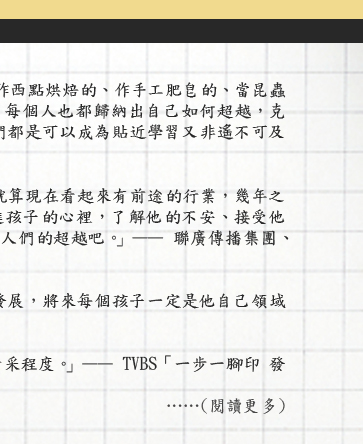 作西點烘焙的、作手工肥皂的、當昆蟲
每個人也都歸納出自己如何超越，克
們都是可以成為貼近學習又非遙不可及
就算現在看起來有前途的行業，幾年之
進孩子的心裡，了解他的不安、接受他
人們的超越吧。」—— 聯廣傳播集團、
發展，將來每個孩子一定是他自己領域
采程度。」—— TVBS「一步一腳印 發
……(閱讀更多)